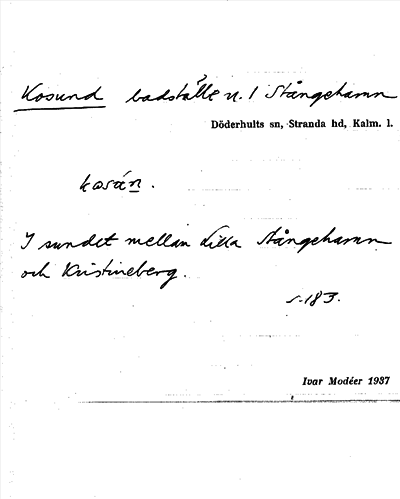 Kosund badställe u. 1 Stångehamn
Döderhults sn, Stranda hd, Kalm. l.
kosán.
I sundet mellan Lilla Stångehamn
och Kristineberg.
s. 183.
Ivar Modéer 1937